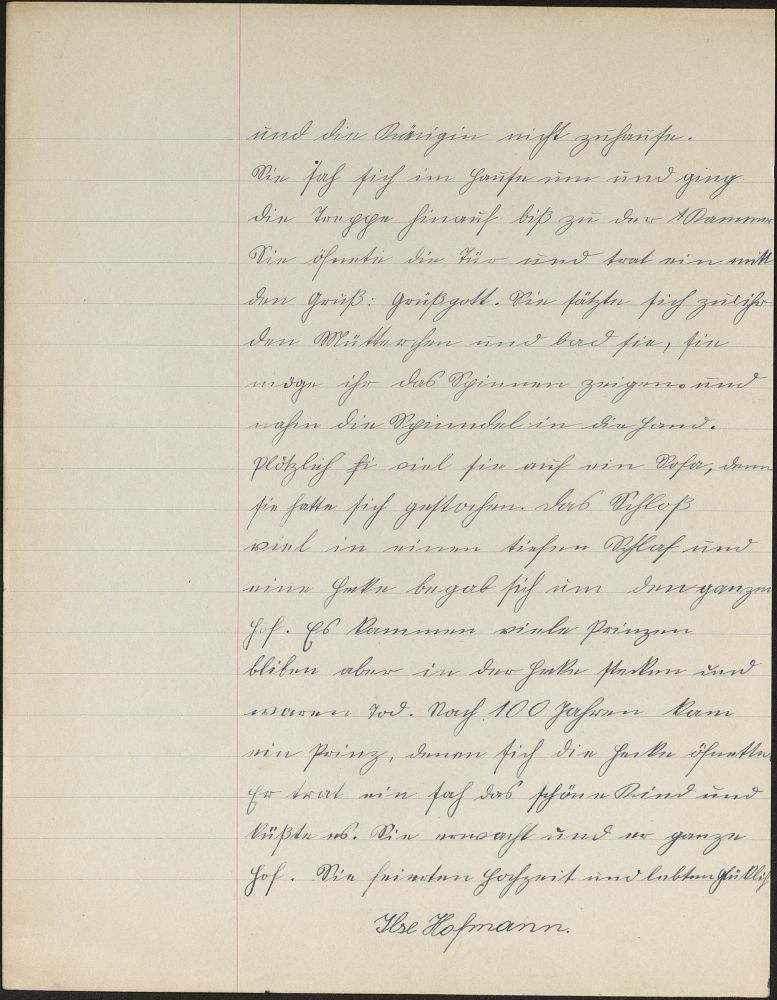 und die Königin nicht zuhause.
Sie sah sich im Hause um und ging
die Treppe hinauf biß zu der Kammer
Sie öfnete die Tür und trat ein mitt
den Gruß: Grüßgott. Sie sätzte sich zu ihr
den Mütterchen und bad sie, sie
möge ihr das Spinnen zeigen und
nahm die Spinndel in die Hand.
Plötzlich viel sie auf ein Sofa, denn
sie hatte sich gestochen. Das Schloß
viel in einen tiefen Schlaf und
eine Hecke begab sich um den ganzen
Hof. Es kammen viele Prinzen
bliben aber in der Hecke stecken und
waren Tod. Nach 100 Jahren kam
ein Prinz, denen sich die Hecke öfnette
Er trat ein sah das schöne Kind und
küßte es. Sie erwacht und er ganze
Hof. Sie feierten Hochzeit und lebten glüklich
Ilse Hofmann.